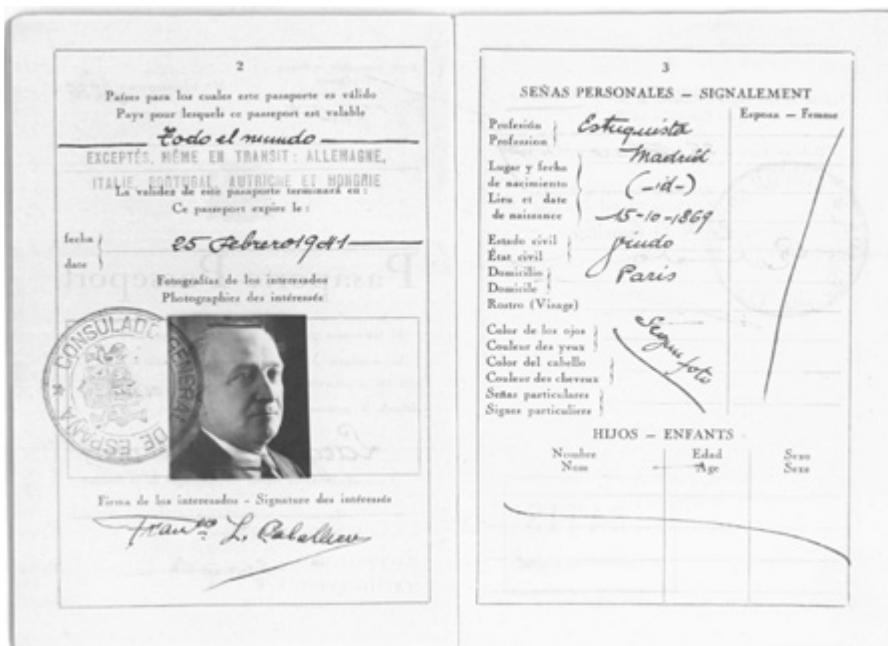 2
Países para los cuales este pasaporte es válido
Pays pour lesquels ce passeport est valable
Todo el mundo
EXCEPTÉS, MÊME EN TRANSIT: ALLEMAGNE,
ITALIE, PORTUGAL, AUTRICHE ET HONGRIE
La validez de este pasaporte terminará en:
Ce passeport expire le:
fecha
date
25 Febrero 1941
Fotografías de los interesados
Photographies des intéressés
CONSULADO GENERAL DE ESPAÑA
Firma de los interesados - Signature des intéressés
Franco L. Caballero
3
SEÑAS PERSONALES — SIGNALEMENT
Esposa — Femme
Profesión
Profession
Estuquista
Madrid
Lugar y fecha
de nacimiento
(-id-)
Lieu et date
de naissance
15-10-1869
Estado civil
État civil
viudo
Domicilio
Domicile
París
Rostro (Visage)
Color de los ojos
Couleur des yeux
Color del cabello
Couleur des cheveux
Según foto
Señas particulares
Signes particuliers
HIJOS — ENFANTS
Nombre Edad Sexo
Nom Age Sexe